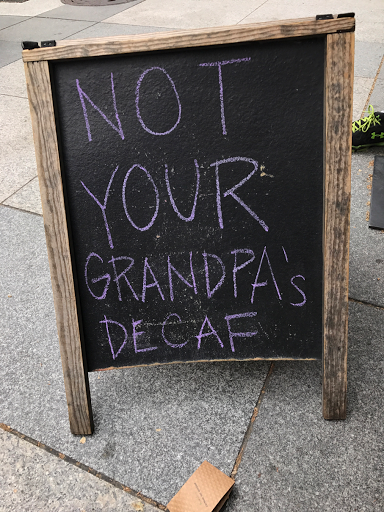 NOT
YOUR
GRANDPA's
DECAF